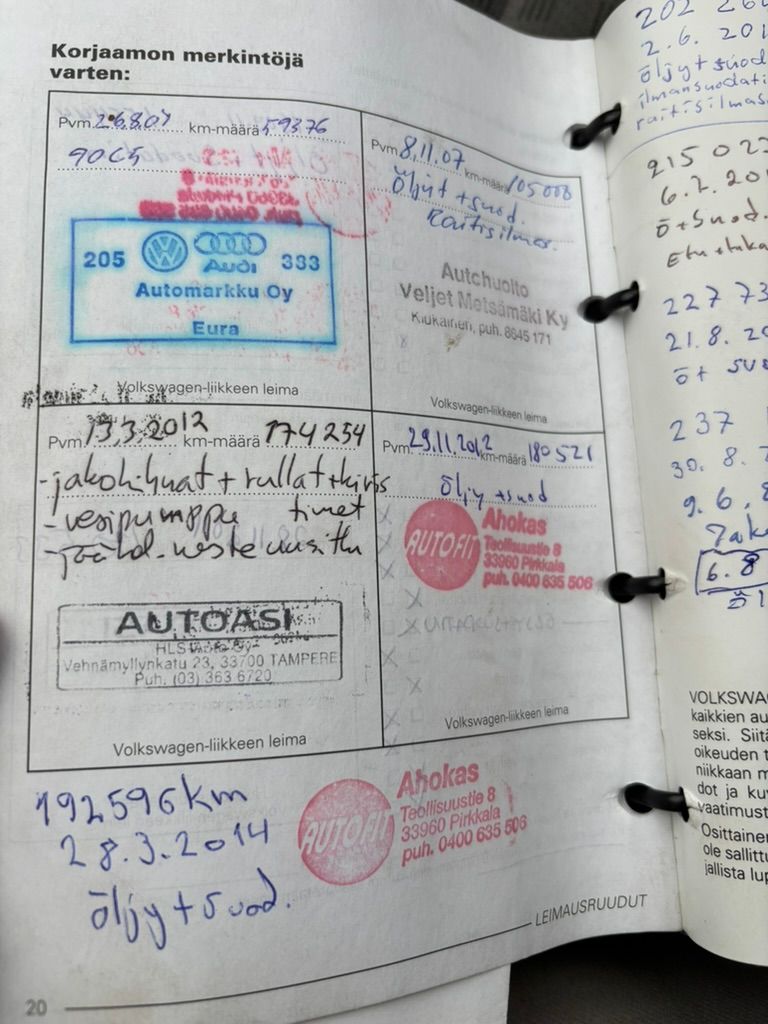 Korjaamon merkintöjä
varten:
Pvm 2.6.8.04 km-määrä 59376
205 Audi 333
Automarkku Oy
Eura
Volkswagen-liikkeen leima
Pvm 8.11.07 km-määrä 105000
Öljyt + suod.
Raitisilmas.
Autohuolto
Veljet Metsämäki Ky
Kiukainen, puh. 8645 171
Volkswagen-liikkeen leima
Pvm 13.3.2012 km-määrä 174254
-jakohihnat + rullat + kiris
-vesipumppu timet
-jäähd. neste uusittu
AUTOASI
Vehnämyllynkatu 23, 33700 TAMPERE
Puh. (03) 363 6720
Volkswagen-liikkeen leima
Pvm 29.11.2012 km-määrä 180521
öljy + suod
AUTOFIT
Ahokas
Teollisuustie 8
33960 Pirkkala
puh. 0400 635 506
Volkswagen-liikkeen leima
192596 km
28.3.2014
öljy + suod.
AUTOFIT
Ahokas
Teollisuustie 8
33960 Pirkkala
puh. 0400 635 506
LEIMAUSRUUDUT
20
2.6.201
öljy + suod
ilmansuodati
raitisilmas
215 023
6.2.201
ö + suod.
Etu + taka
227 73
21.8.20
ö + suo
237
30.8.
9.6.
6.8
öl
VOLKSWA
kaikkien au
seksi. Siitä
oikeuden t
niikkaan m
dot ja kuv
vaatimust
Osittainen
ole sallittu
jallista lup